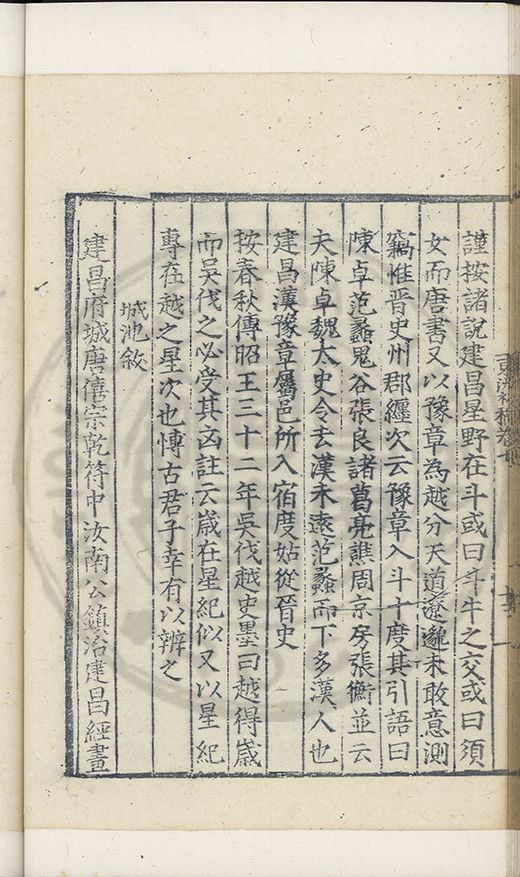 謹按諸說建昌星野在斗或曰斗牛之交或曰須
女而唐書又以豫章為越分天道遼邈未敢意測
竊惟晉史州郡纏次云豫章入斗十度其引語曰
陳卓范蠡鬼谷張良諸葛亮譙周京房張衡並云
夫陳卓魏太史令去漢未遠范蠡而下多漢人也
建昌漢豫章屬邑所入宿度姑從晉史
按春秋傳昭王三十二年吳伐越史墨曰越得歲
而吳伐之必受其凶註云歲在星紀似又以星紀
專在越之星次也慱古君子幸有以辨之
城池敘
建昌府城唐僖宗乾符中汝南公鎮治建昌經畫